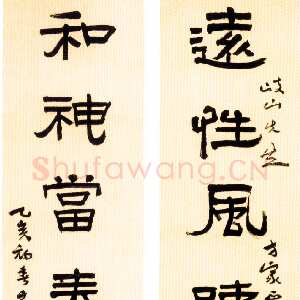 遠性風
岐山先生
方家
和神當春
乙亥初春
Shufawang.CN